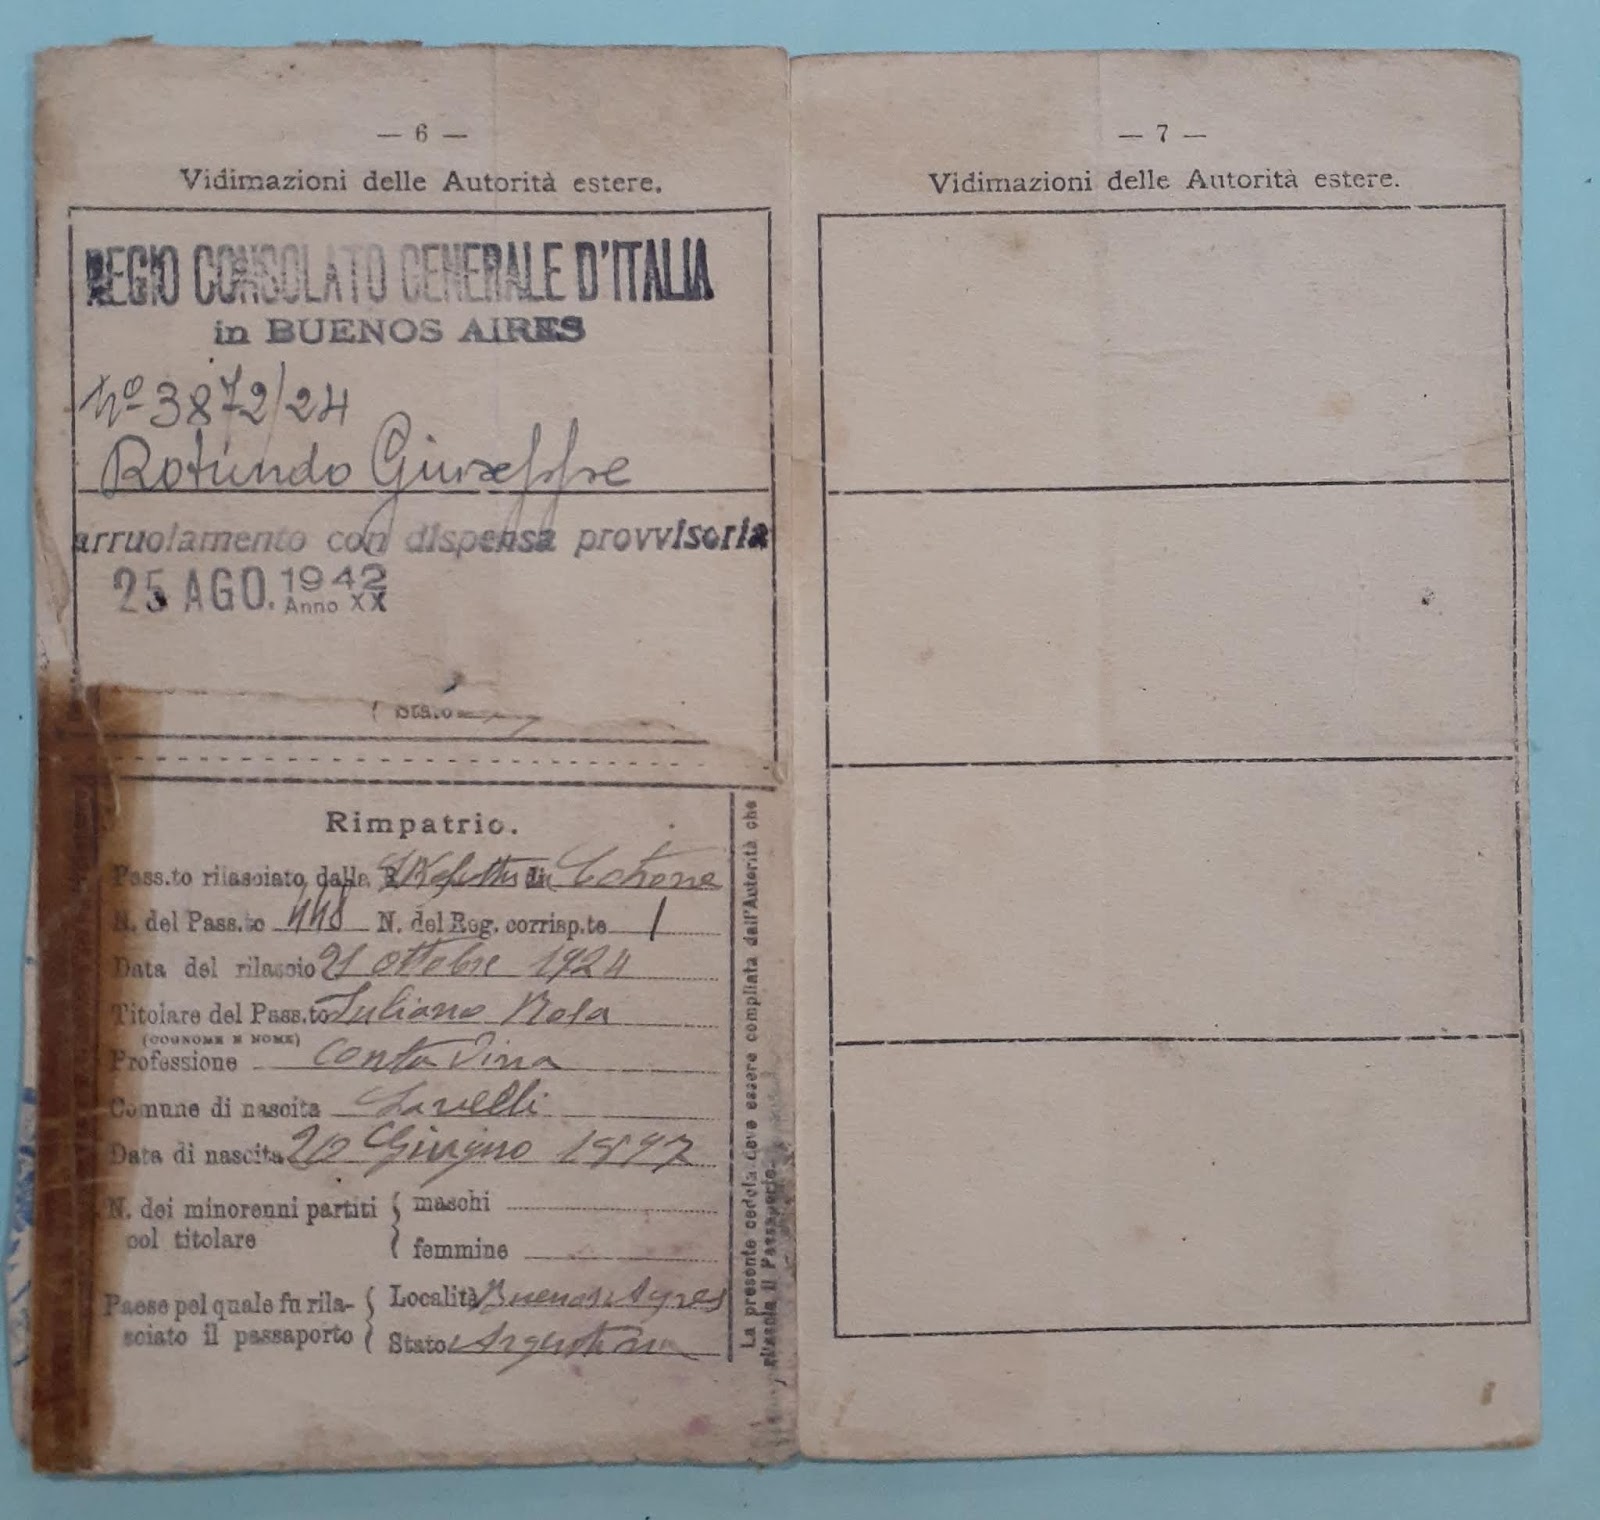 — 6 —
Vidimazioni delle Autorità estere.
REGIO CONSOLATO GENERALE D'ITALIA
in BUENOS AIRES
Nº 3872/24
Rotundo Giuseppe
arruolamento con dispensa provvisoria
25 AGO. 1942
Anno XX
Stato
Rimpatrio.
Pass.to rilasciato dalla R. Prefettura di Cotrone
N. del Pass.to 448 N. del Reg. corrisp.te 1
Data del rilascio 21 ottobre 1924
Titolare del Pass.to Iuliano Rosa
(COGNOME E NOME)
Professione Contadina
Comune di nascita Savelli
Data di nascita 20 Giugno 1897
N. dei minorenni partiti { maschi
col titolare { femmine
Paese pel quale fu rila- { Località Buenos Ayres
sciato il passaporto { Stato Argentina
La presente cedola deve essere compilata dall'Autorità che
rilascia il Passaporto.
— 7 —
Vidimazioni delle Autorità estere.